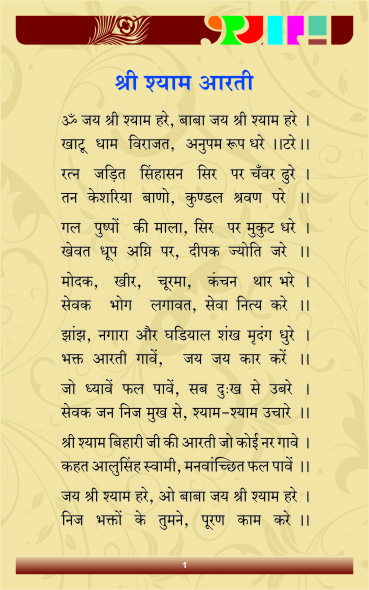 श्री श्याम आरती
ॐ जय श्री श्याम हरे, बाबा जय श्री श्याम हरे ।
खाटू धाम विराजत, अनुपम रूप धरे ।।टरे।।
रत्न जड़ित सिंहासन सिर पर चँवर ढुरे ।
तन केशरिया बाणो, कुण्डल श्रवण परे ।।
गल पुष्पों की माला, सिर पर मुकुट धरे ।
खेवत धूप अग्नि पर, दीपक ज्योति जरे ।।
मोदक, खीर, चूरमा, कंचन थार भरे ।
सेवक भोग लगावत, सेवा नित्य करे ।।
झांझ, नगारा और घडियाल शंख मृदंग धुरे ।
भक्त आरती गावें, जय जय कार करें ।।
जो ध्यावें फल पावें, सब दुःख से उबरे ।
सेवक जन निज मुख से, श्याम-श्याम उचारे ।।
श्री श्याम बिहारी जी की आरती जो कोई नर गावे ।
कहत आलुसिंह स्वामी, मनवांच्छित फल पावें ।।
जय श्री श्याम हरे, ओ बाबा जय श्री श्याम हरे ।
निज भक्तों के तुमने, पूरण काम करे ।।
1